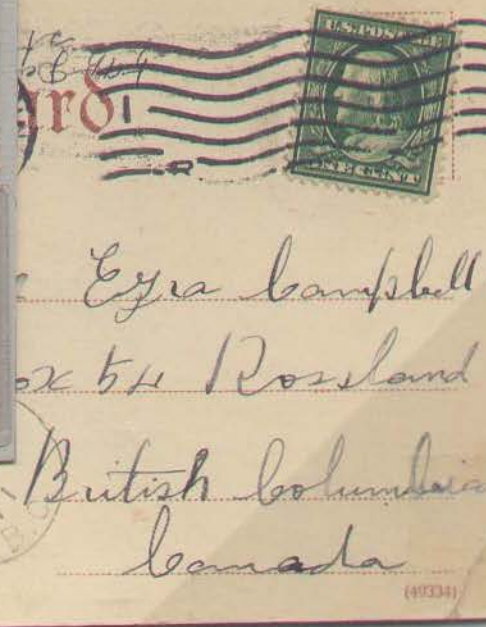 ard
U.S. POSTAGE
R
Ezra Campbell
ox 54 Rossland
British Columbia
Canada
B.C
(49334)